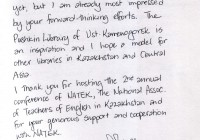 yet, but I am already most impressed
by your forward-thinking efforts. The
Pushkin Library of Ust-Kamenogorsk is
an inspiration and I hope a model for
other libraries in Kazakhstan and Central
Asia.
I thank you for hosting the 2nd annual
conference of NATEK, The National Assoc.
of Teachers of English in Kazakhstan and
for your generous support and cooperation
with NATEK.